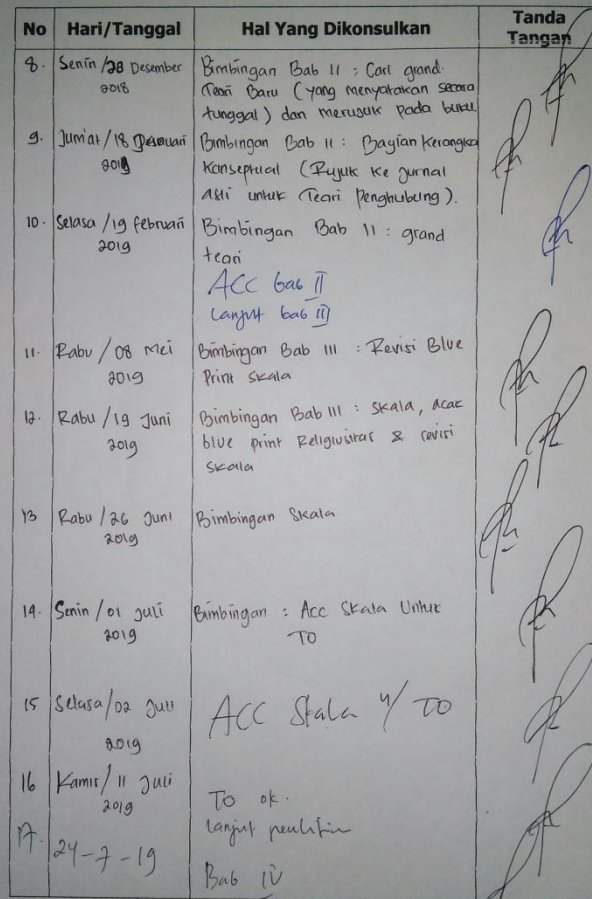 No Hari/Tanggal Hal Yang Dikonsulkan Tanda Tangan
8. Senin /28 Desember 2018 Bimbingan Bab II : Cari grand
Teori Baru (yang menyatakan secara
tunggal) dan merujuk pada buku
9. Jum'at /18 Januari 2019 Bimbingan Bab II : Bagian Kerangka
Konseptual (Rujuk ke Jurnal
asli untuk Teori Penghubung).
10. Selasa /19 februari 2019 Bimbingan Bab II : grand
teori
ACC bab II
Lanjut bab III
11. Rabu / 08 Mei 2019 Bimbingan Bab III : Revisi Blue
Print Skala
12. Rabu /19 Juni 2019 Bimbingan Bab III : Skala, acak
blue print Religiusitas & revisi
Skala
13 Rabu /26 Juni 2019 Bimbingan Skala
14. Senin /01 Juli 2019 Bimbingan : Acc Skala Untuk
TO
15 Selasa/02 Juli 2019 ACC Skala u/ TO
16 Kamis/ 11 Juli 2019 TO ok.
Lanjut penelitian
17. 24-7-19 Bab IV